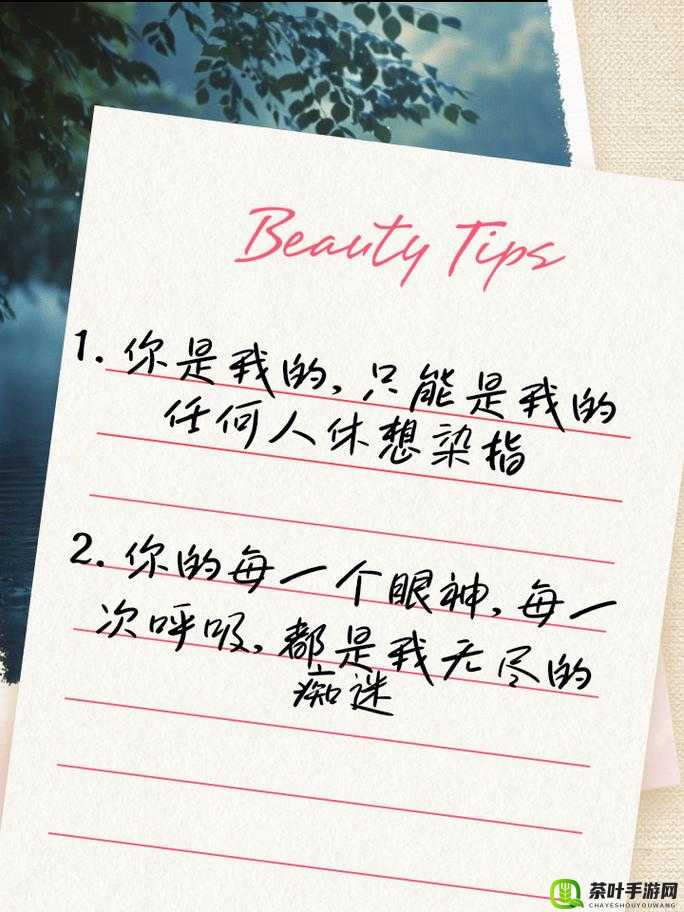 Beauty Tips
1. 你是我的，只能是我的
任何人休想染指
2. 你的每一个眼神，每一
次呼吸，都是我无尽的
痴迷
茶叶手游网
CHAYESHOUYOUWANG